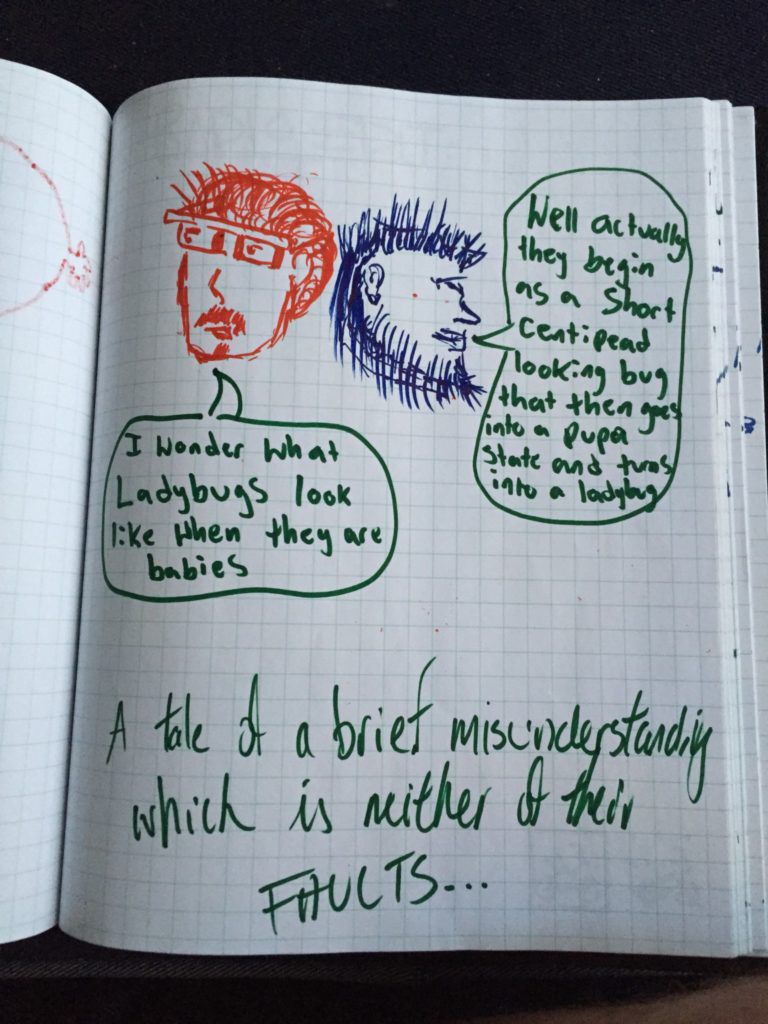 I wonder what
Ladybugs look
like when they are
babies
Well actually
they begin
as a Short
Centipead
looking bug
that then goes
into a pupa
state and turns
into a ladybug
A tale of a brief misunderstanding
which is neither of their
FAULTS...